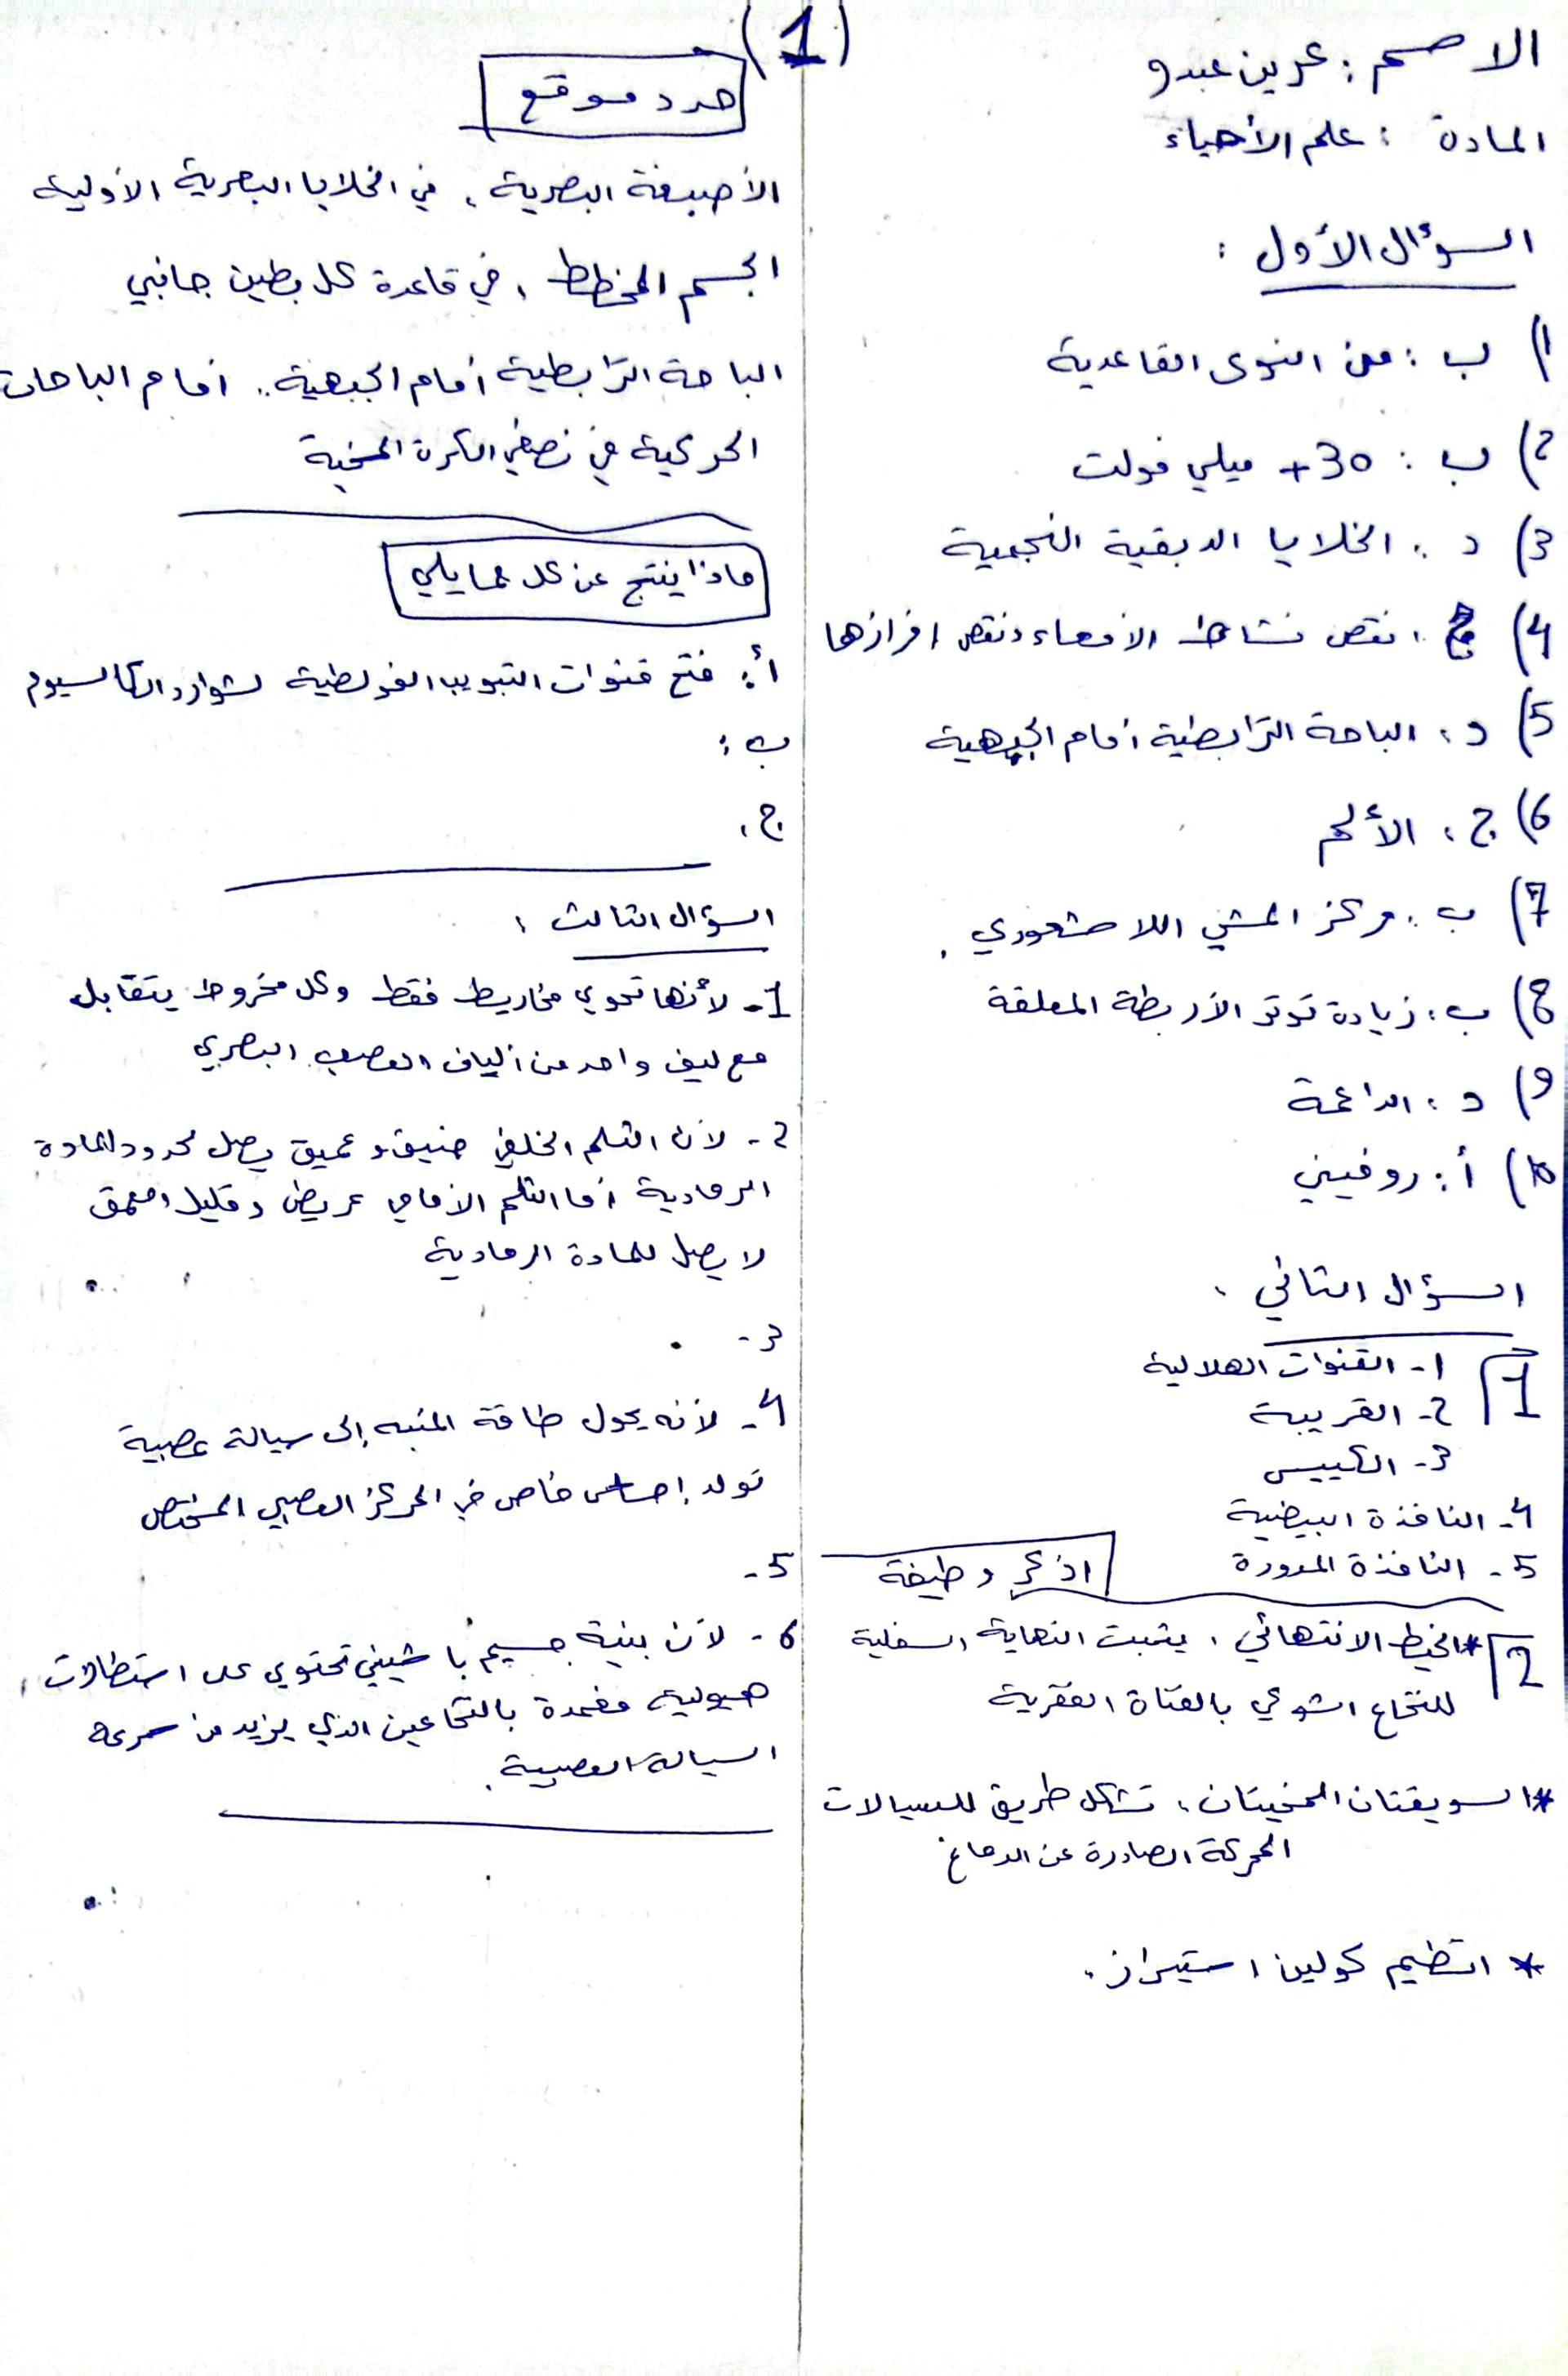 (1)
الاسم : عرين عبدو
المادة : علم الأحياء
السؤال الأول :
1) ب : من النوى القاعدية
2) ب : 30+ ميلي فولت
3) د : الخلايا الدبقية النجمية
4) ج : نقص نشاط الأمعاء ونقص افرازها
5) د : الباحة الترابطية أمام الجبهية
6) ج : الألم
7) ب : مركز المشي اللا شعوري .
8) ب : زيادة توتر الأربطة المعلقة
9) د : الداعمة
10) أ : روفيني
السؤال الثاني :
1
1- القنوات الهلالية
2- القريبة
3- الكييس
4- النافذة البيضية
5- النافذة المدورة
اذكر وظيفة
2
* الخيط الانتهائي : يثبت النهاية السفلية
للنخاع الشوكي بالقناة الفقرية
* السويقتان المخيتان : تشكل طريق للسيالات
المحركة الصادرة عن الدماغ
* انظيم كولين استيراز :
حدد موقع
الأصبغة البصرية : في الخلايا البصرية الأولية
الجسم المخطط : في قاعدة كل بطين جانبي
الباحة الترابطية أمام الجبهية : أمام الباحات
الحركية في نصفي الكرة المخية
ماذا ينتج عن كل مما يلي
أ : فتح قنوات التبويب الفولطية لشوارد الكالسيوم
ب :
ج :
السؤال الثالث :
1- لأنها تحوي مخاريط فقط وكل مخروط يتقابل
مع ليف واحد من ألياف العصب البصري
2- لأن الثلم الخلفي ضيق و عميق يصل لحدود المادة
الرمادية أما الثلم الأمامي عريض وقليل العمق
لا يصل للمادة الرمادية
3-
4- لأنه يحول طاقة المنبه إلى سيالة عصبية
تولد إحساس خاص في المركز العصبي المختص
5-
6- لأن بنية جسيم باشيني تحتوي على استطالات
هيولية مغمدة بالنخاعين الذي يزيد من سرعة
السيالة العصبية .